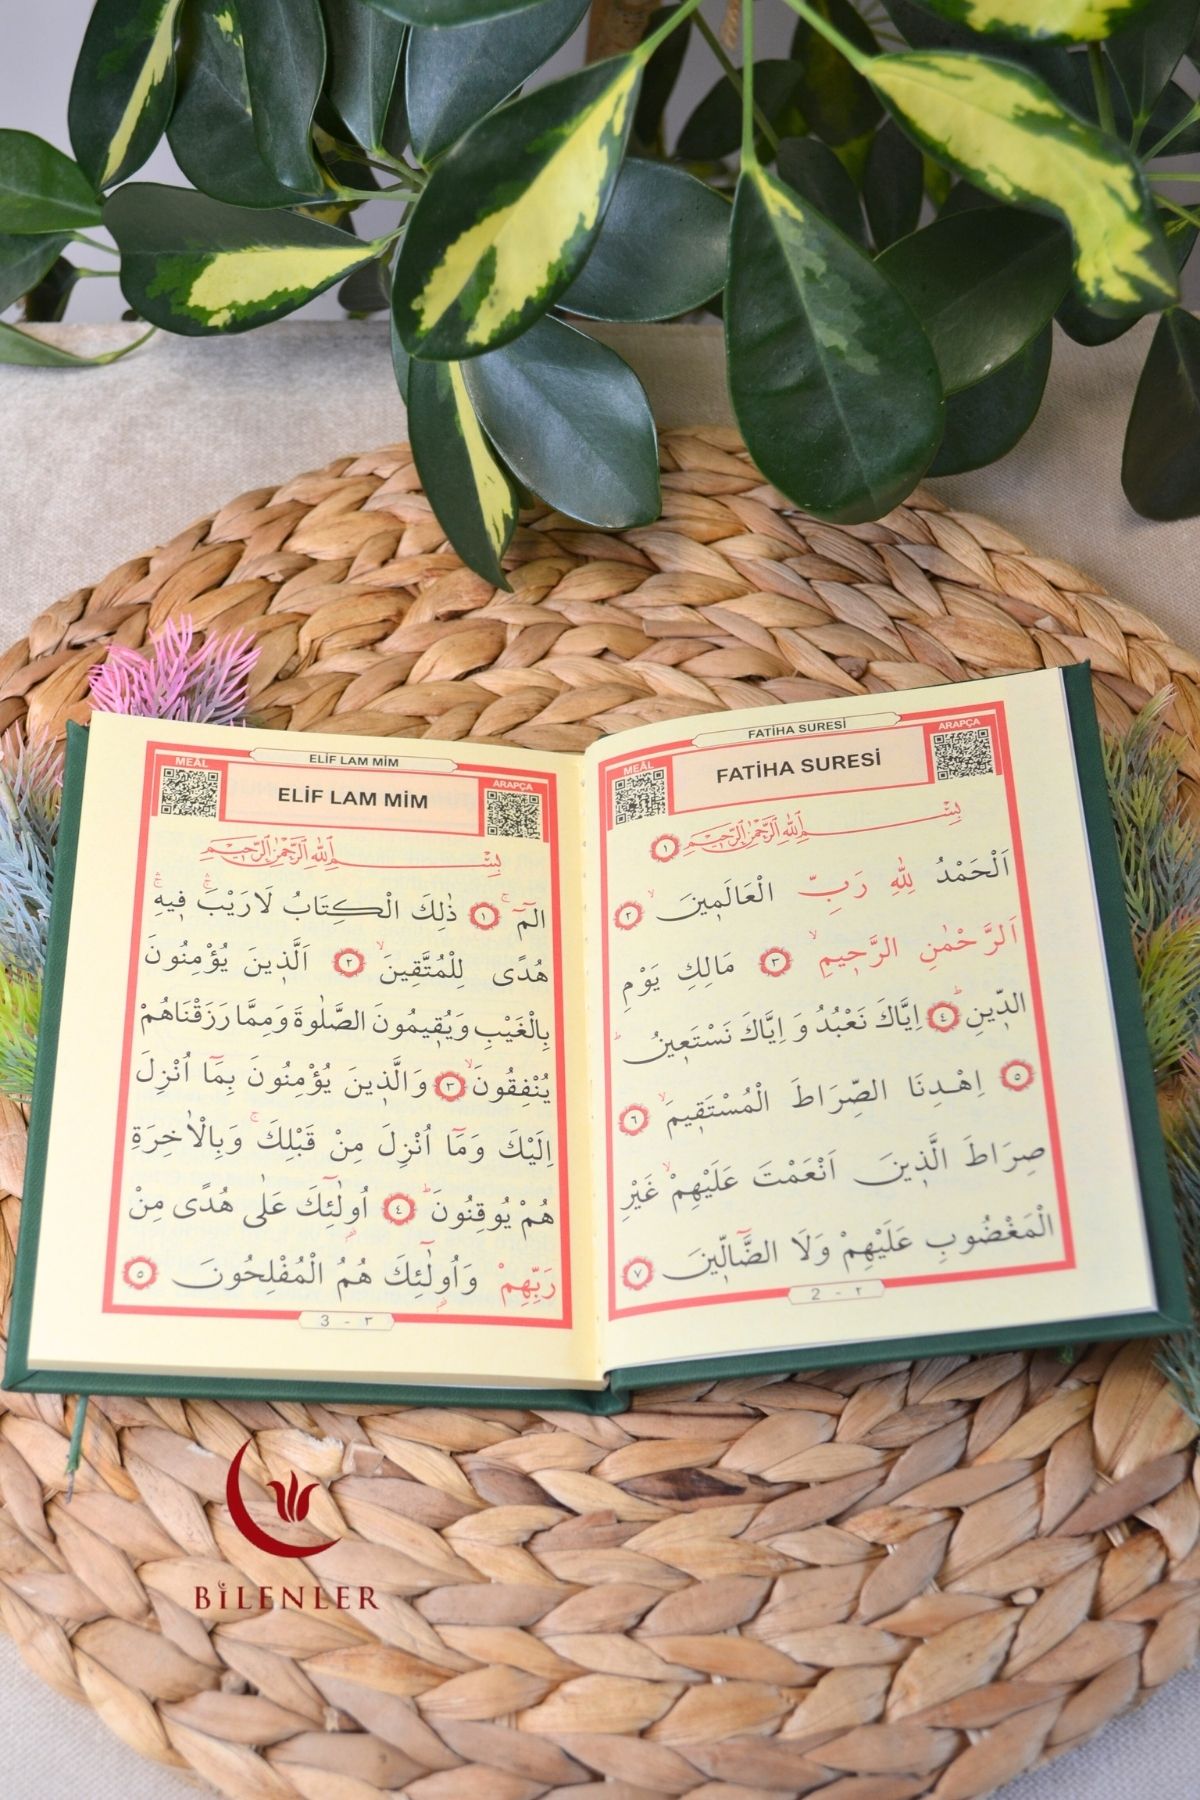 FATİHA SURESİ
MEÂL
FATİHA SURESİ
ARAPÇA
بِسْمِ اللهِ الرَّحْمٰنِ الرَّحِيمِ ١
اَلْحَمْدُ لِلّٰهِ رَبِّ الْعَالَمِينَۙ ٢
اَلرَّحْمٰنِ الرَّحِيمِۙ ٣ مَالِكِ يَوْمِ
الدِّينِۜ ٤ اِيَّاكَ نَعْبُدُ وَ اِيَّاكَ نَسْتَعِينُۜ
٥ اِهْدِنَا الصِّرَاطَ الْمُسْتَقِيمَۙ ٦
صِرَاطَ الَّذِينَ اَنْعَمْتَ عَلَيْهِمْۙ غَيْرِ
الْمَغْضُوبِ عَلَيْهِمْ وَلَا الضَّٓالِّينَ ٧
2 - ٢
ELİF LAM MİM
MEÂL
ELİF LAM MİM
ARAPÇA
بِسْمِ اللهِ الرَّحْمٰنِ الرَّحِيمِ
الٓمٓۚ ١ ذٰلِكَ الْكِتَابُ لَارَيْبَۚۛ فِيهِۚۛ
هُدًى لِلْمُتَّقِينَۙ ٢ اَلَّذِينَ يُؤْمِنُونَ
بِالْغَيْبِ وَيُقِيمُونَ الصَّلٰوةَ وَمِمَّا رَزَقْنَاهُمْ
يُنْفِقُونَۙ ٣ وَالَّذِينَ يُؤْمِنُونَ بِمَٓا اُنْزِلَ
اِلَيْكَ وَمَٓا اُنْزِلَ مِنْ قَبْلِكَۚ وَبِالْاٰخِرَةِ
هُمْ يُوقِنُونَۜ ٤ اُولٰٓئِكَ عَلٰى هُدًى مِنْ
رَبِّهِمْ وَاُولٰٓئِكَ هُمُ الْمُفْلِحُونَ ٥
3 - ٣
BİLENLER